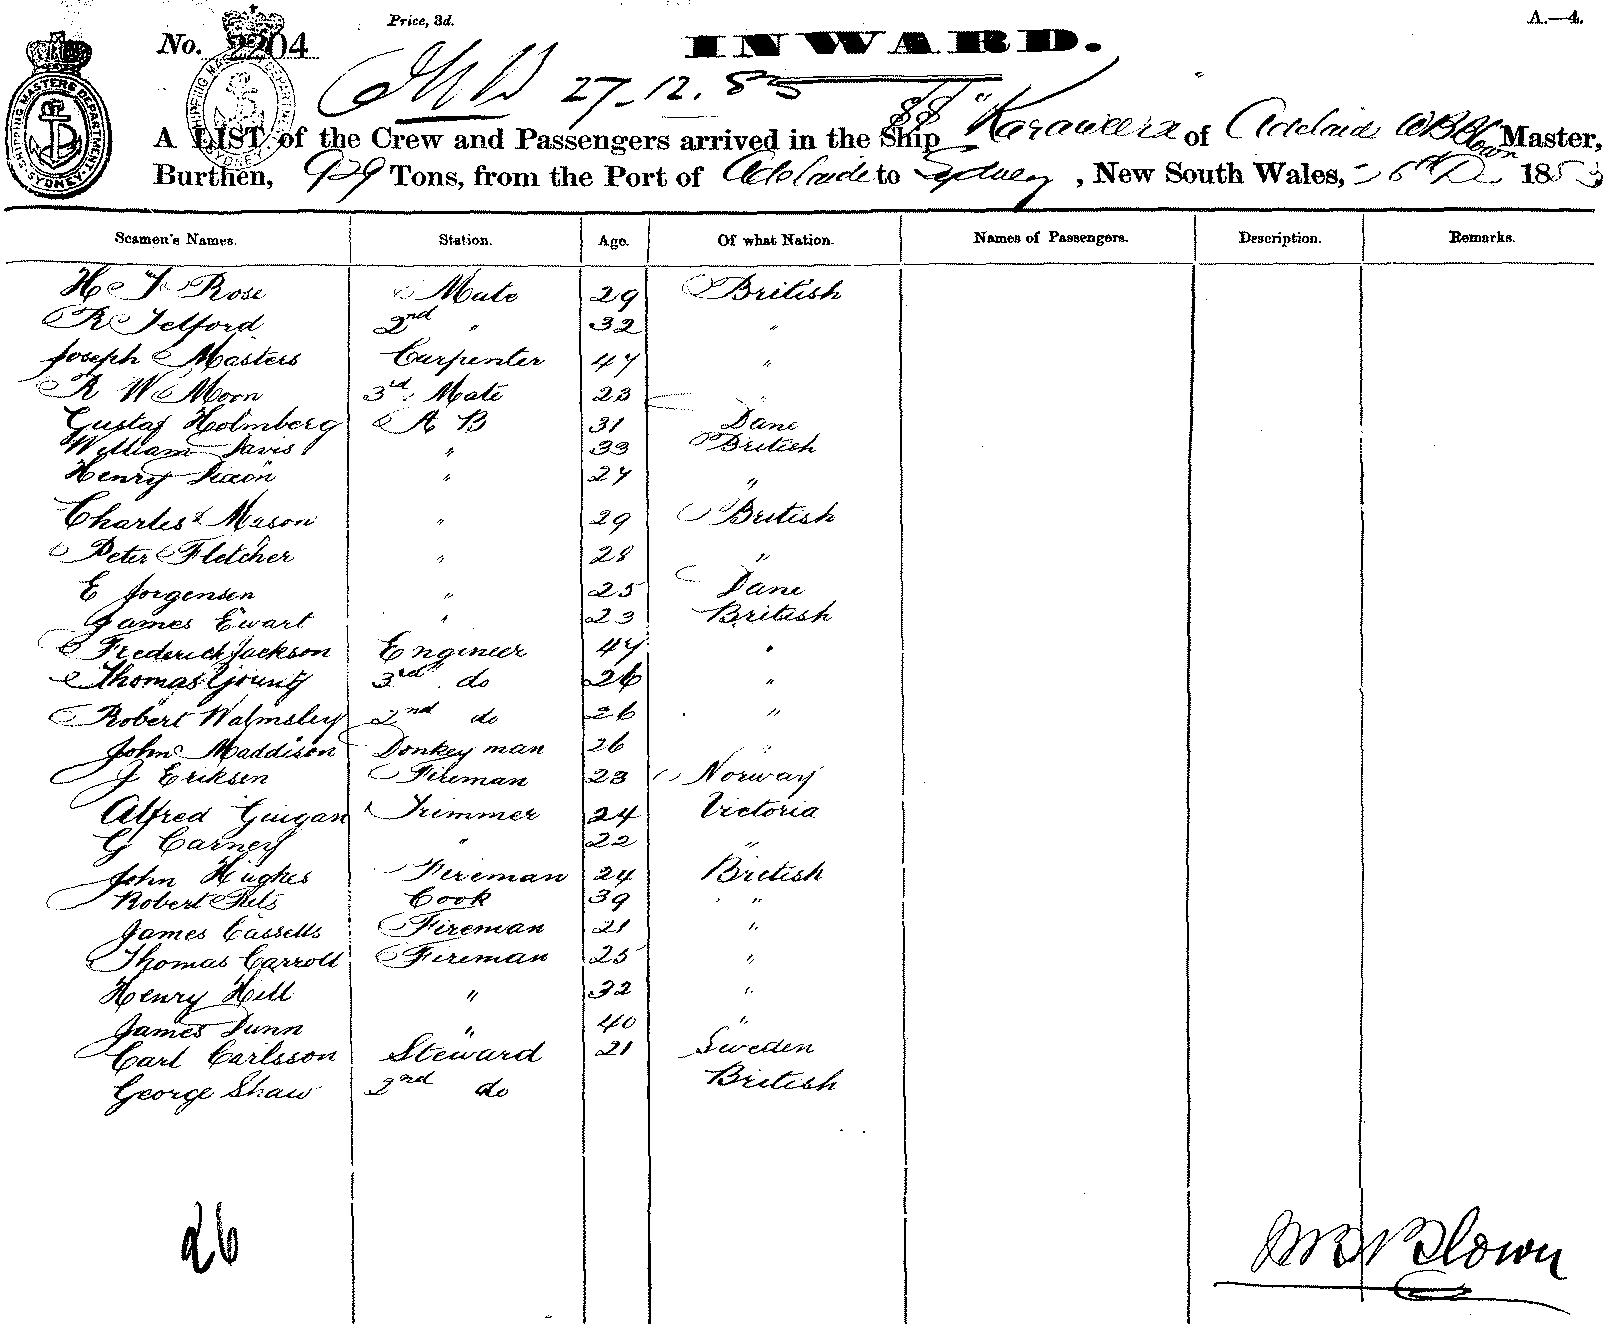 Price, 3d.
A.—4.
No. 2204
INWARD.
SHIPPING MASTERS DEPARTMENT SYDNEY
27-12.85
A LIST of the Crew and Passengers arrived in the Ship SS "Karaweera" of Adelaide W B Blown Master,
Burthen, 929 Tons, from the Port of Adelaide to Sydney, New South Wales, 26th D 188
Seamen's Names. Station. Age. Of what Nation. Names of Passengers. Description. Remarks.
H J Rose Mate 29 British
R Telford 2nd " 32 "
Joseph Masters Carpenter 47 "
R W Moon 3rd Mate 23 "
Gustaf Holmberg A B 31 Dane
William Davis " 33 British
Henry Dixon " 27 "
Charles Mason " 29 British
Peter Fletcher " 28 "
E Jorgensen " 25 Dane
James Ewart " 23 British
Frederick Jackson Engineer 47 "
Thomas Young 3rd do 26 "
Robert Walmsley 2nd do 26 "
John Maddison Donkey man 26 "
J Eriksen Fireman 23 Norway
Alfred Guigan Trimmer 24 Victoria
G Carney " 22 "
John Hughes Fireman 24 British
Robert Cook 39 "
James Cassells Fireman 21 "
Thomas Carroll Fireman 25 "
Henry Hill " 32 "
James Dunn " 40 "
Carl Carlsson Steward 21 Sweden
George Shaw 2nd do British
26
W B Blown